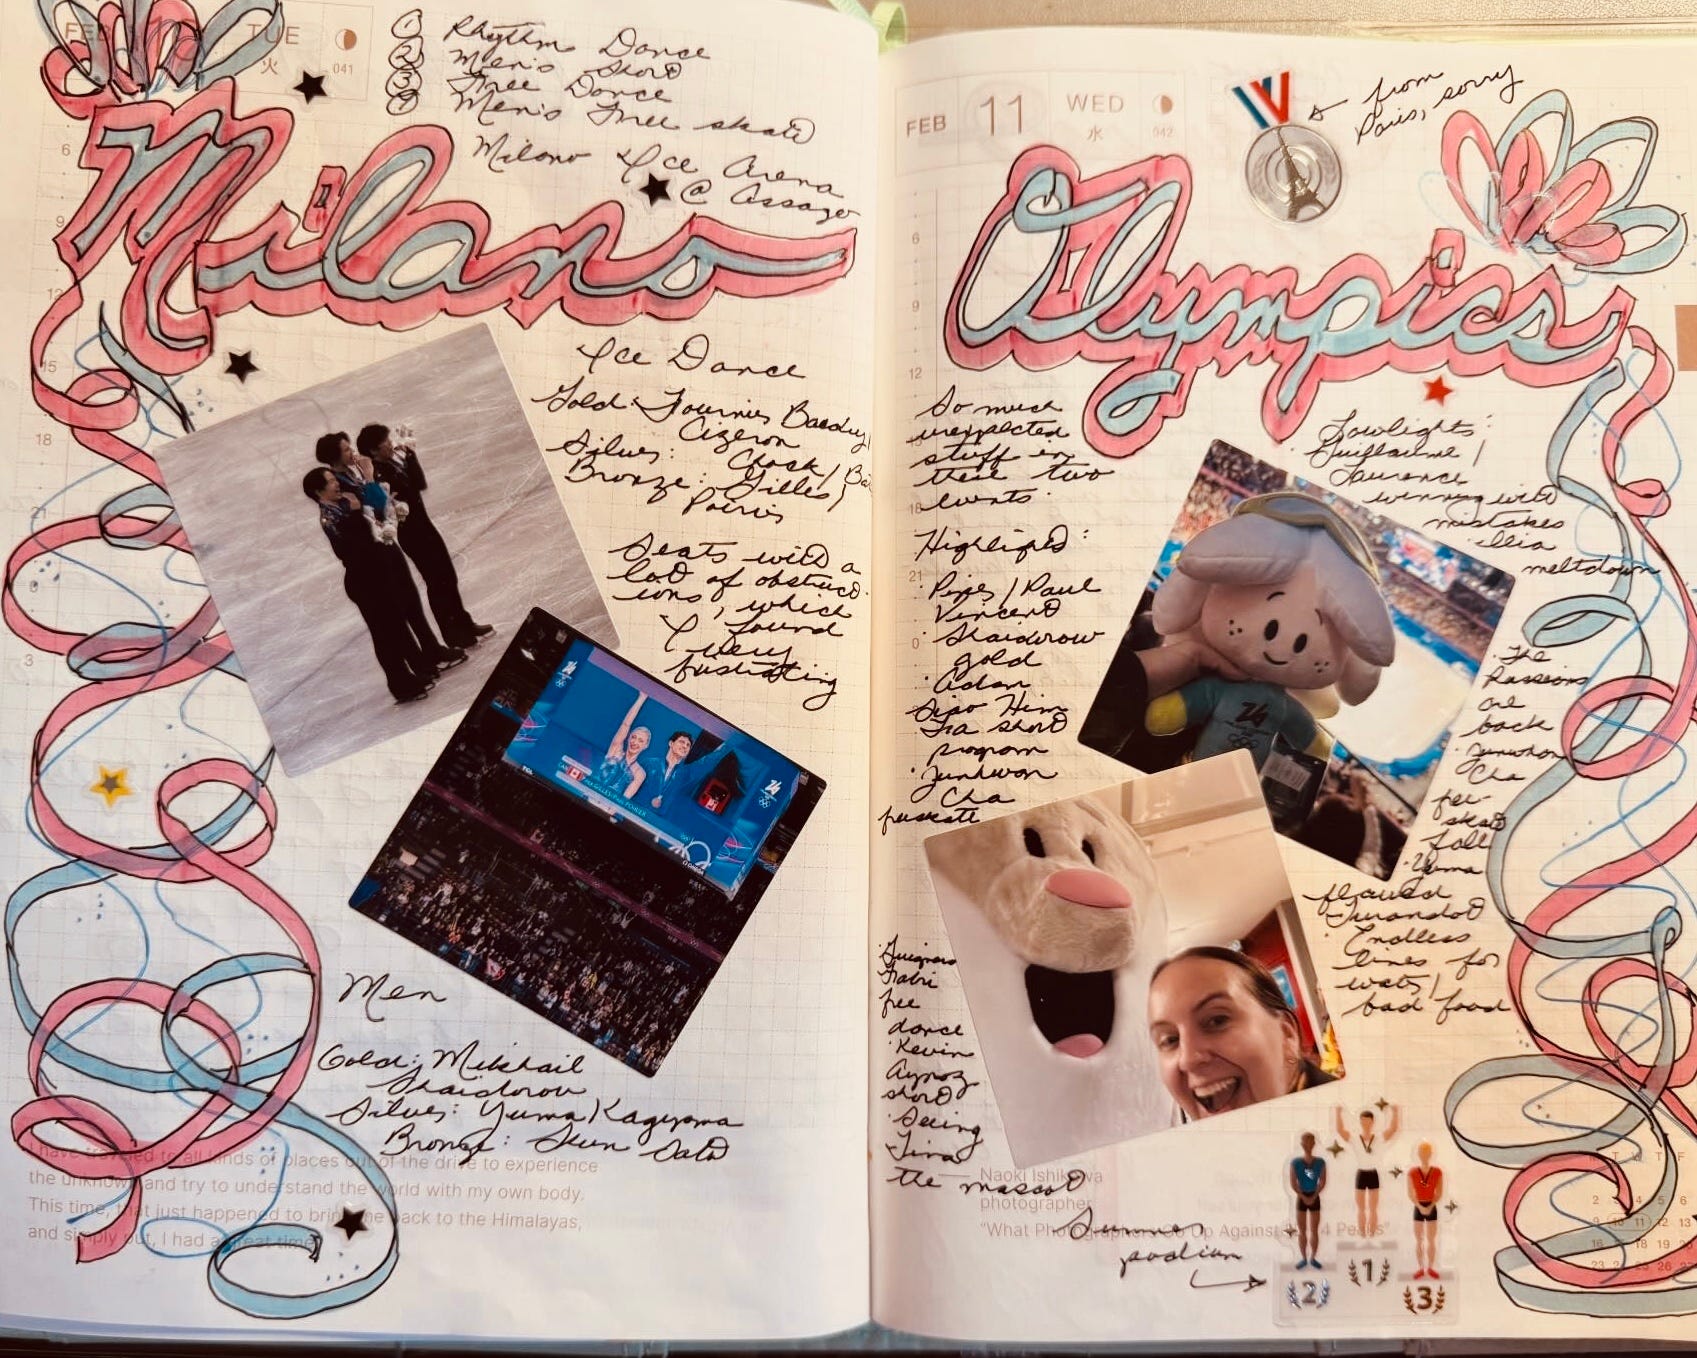 FEB
TUE
火
041
① Rhythm Dance
② Men's Short
③ Free Dance
④ Men's Free skate
Milano Ice Arena
@ Assago
Milano
Ice Dance
Gold: Fournier Beaudry/
Cizeron
Silver: Chock/
Bronze: Gilles/
Poirier
Seats with a
lot of obstruct-
ions, which
I found
very
frustrating
Men
Gold: Mikhail
Shaidorov
Silver: Yuma Kagiyama
Bronze: Shun Sato
I have traveled to all kinds of places out of the drive to experience
the unknown and try to understand the world with my own body.
This time, that just happened to bring me back to the Himalayas,
and simply put, I had a great time.
FEB 11 WED
水
042
from
Paris, sorry
Olympics
So much
unexpected
stuff in
these two
events.
Highlights:
· Piper/Paul
Vincent
· Shaidorov
gold
· Adam
Siao Him
Fa short
program
· Junhwan
Cha
freeskate
· Guignard
Fabri
free
dance
· Kevin
Aymoz
short
· Seeing
Tina
the mascot
Lowlights:
Guillaume/
Laurence
winning with
mistakes
· Ilia
meltdown
· The
Russians
are
back
· Junwhan
Cha
free-
skate
fall
· Yuma
flawed
Turandot
· Endless
lines for
water/
bad food
Naoki Ishikawa
photographer
"What Photographers Go Up Against: 4 Peaks"
Summer
podium
2
1
3